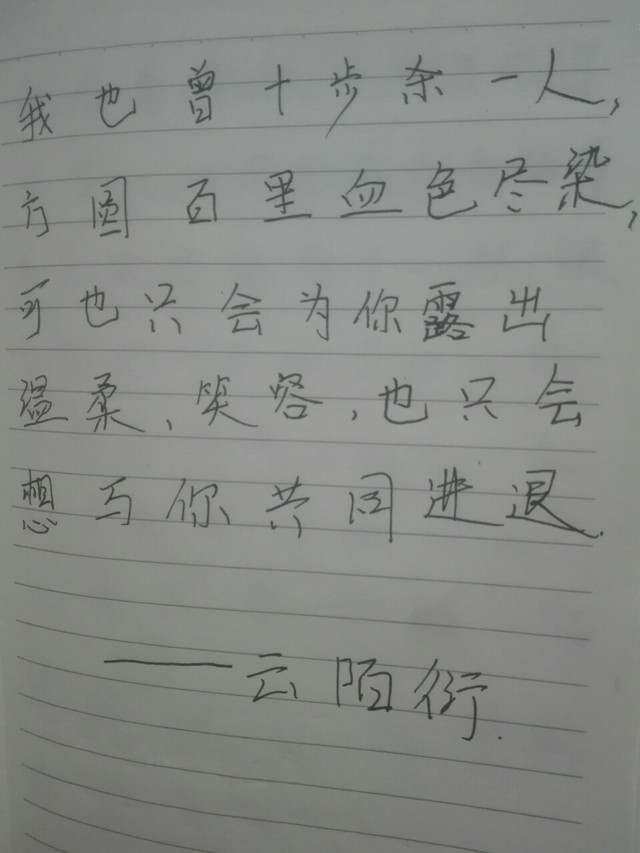 我也曾十步杀一人,
方圆百里血色尽染,
可也只会为你露出
温柔、笑容,也只会
想与你共同进退.
——云陌衍.